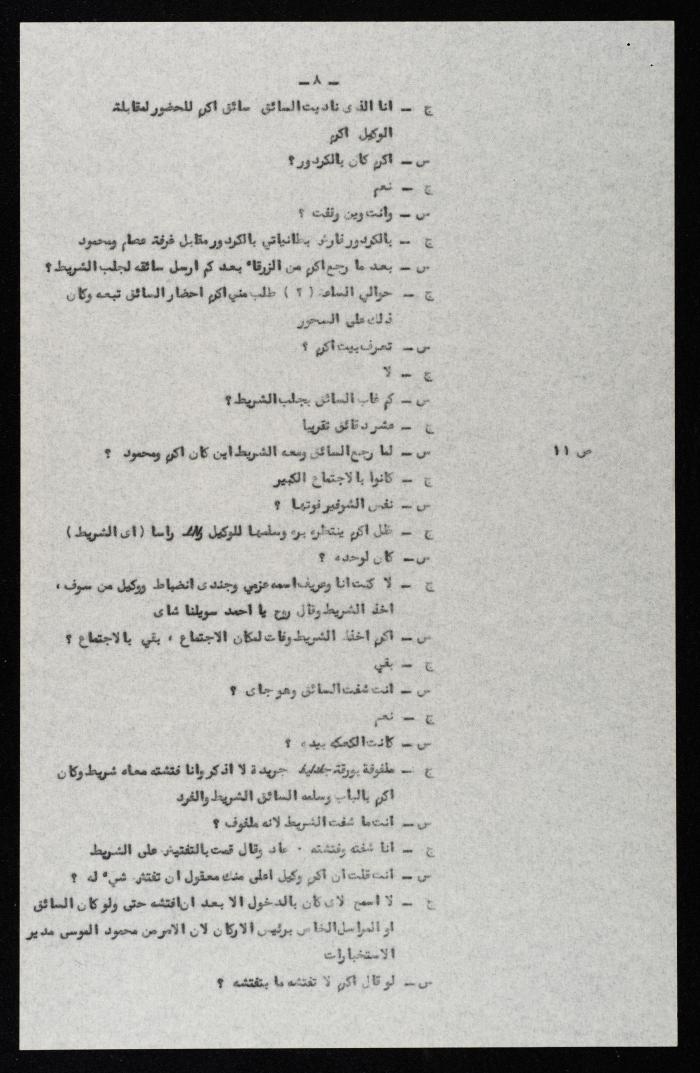 - ٨ -
ج - انا الذى ناديت السائق سائق اكرم للحضور لمقابلة
الوكيل اكرم
س - اكرم كان بالكردور ؟
ج - نعم
س - وانت وين وقفت ؟
ج - بالكردور فارش بطانياتي بالكردور مقابل غرفة عصام ومحمود
س - بعد ما رجع اكرم من الزرقاء بعد كم ارسل سائقه لجلب الشريط ؟
ج - حوالي الساعة ( ٢ ) طلب مني اكرم احضار السائق تبعه وكان
ذلك على السحور
س - تعرف بيت اكرم ؟
ج - لا
س - كم غاب السائق بجلب الشريط ؟
ج - عشر دقائق تقريبا
س - لما رجع السائق ومعه الشريط اين كان اكرم ومحمود ؟
ص ١١
ج - كانوا بالاجتماع الكبير
س - نفس الشوفير فوتها ؟
ج - ظل اكرم ينتظره بره وسلمها للوكيل راسا ( اى الشريط )
س - كان لوحده ؟
ج - لا كنت انا وعريف اسمه عزمي وجندى انضباط ووكيل من سوف ،
اخذ الشريط وقال روح يا احمد سويلنا شاى
س - اكرم اخذ الشريط وفات لمكان الاجتماع ، بقي بالاجتماع ؟
ج - بقي
س - انت شفت السائق وهو جاى ؟
ج - نعم
س - كانت الكعكه بيده ؟
ج - ملفوفة بورقة جريدة لا اذكر وانا فتشته معاه شريط وكان
اكرم بالباب وسلمه السائق الشريط والفرد
س - انت ما شفت الشريط لانه ملفوف ؟
ج - انا شفته وفتشته . عاد وقال قمت بالتفتيش على الشريط
س - انت قلت ان اكرم وكيل اعلى منك معقول ان تفتش شيء له ؟
ج - لا اسمح لاى كان بالدخول الا بعد ان افتشه حتى ولو كان السائق
او المراسل الخاص برئيس الاركان لان الامر من محمود الموسى مدير
الاستخبارات
س - لو قال اكرم لا تفتشه ما بتفتشه ؟